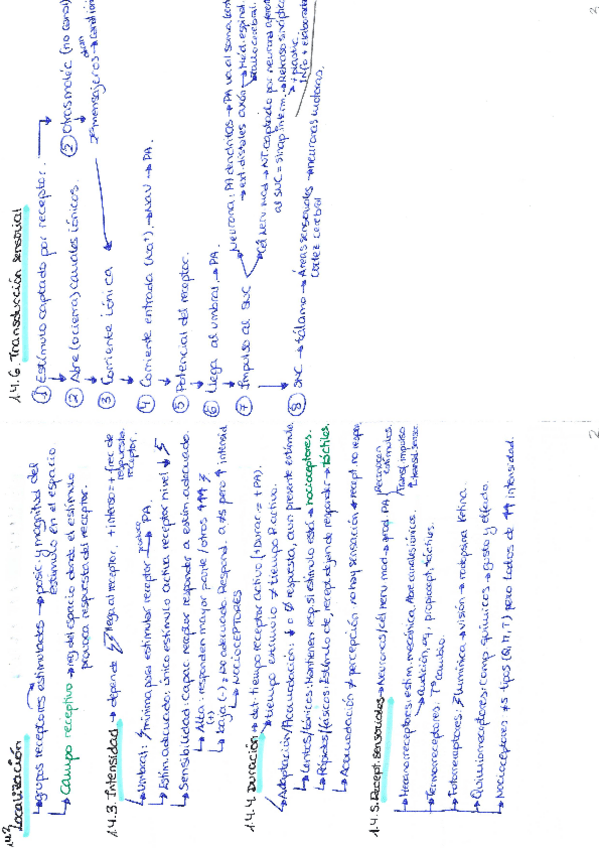 1.4.2 Localización
↳ grupos receptores estimulados → posic. y magnitud del
estímulo en el espacio
↳ Campo receptivo → reg del espacio donde el estímulo
provoca respuesta del receptor.
1.4.3. Intensidad → depende ⚡ llega al receptor, + intenso = + frec de
respuesta
receptor.
↳ Umbral: ⚡ mínima para estimular receptor → PA.
produce
↳ Estím. adecuado: único estímulo activa receptor nivel ↓ ⚡
↳ Sensibilidad: capac. receptor responder a estím. adecuado.
↳ Alta: responden mayor parte / otros ↑↑↑ ⚡
(+)
↳ baja (-): no adecuado Respond. a ≠s pero ↑ intensid
↳ NOCIOCEPTORES
1.4.4. Duración → det. tiempo receptor activo (+Durac = + PA).
↳ tiempo estímulo ≠ tiempo R activo.
↳ Adaptación/Acomodación: ↓ o Ø respuesta, aun presente estímulo
↳ Lentos/tónicos: Mantienen resp si estímulo está → nocioceptores.
↳ Rápidos/fásicos: Estímulo cte, recept dejan de responder → táctiles.
↳ Acomodación ≠ percepción. no hay sensación ≠ recept. no respon
1.4.5. Recept. sensoriales → Neuronas/cél nerv mod → prod PA
Reconocen
estímulos.
Transf. impulso
↳ Mecanorreceptores: estím. mecánica. Abre canales iónicos.
↳ audición, eq, propiocept, táctiles.
↳ Termorreceptores: Tª cambio.
↳ Fotorreceptores: ⚡ lumínica → visión → rodopsina retina.
↳ Quimiorreceptores: comp químicos → gusto y olfato.
↳ Nocioceptores ≠s tipos (Q, M, T) pero todos de ↑↑ intensidad.
2
1.4.6. Transducción sensorial
① Estímulo captado por receptor.
② Abre (o cierra) canales iónicos.
② Otras moléc (no canal)
2os mensajeros →
③ Corriente iónica
④ Corriente entrada (Na⁺). → NaV → PA.
⑤ Potencial del receptor.
⑥ Llega al umbral → PA.
⑦ Impulso al SNC
Neurona: PA dendritas → PA va al soma
→ ext. distales axón → Méd. espinal.
tallo cerebral.
Cél nerv mod → NT captado por neurona
al SNC = sinap interm. → Retraso sináptico
+ plastic.
Info + elaborada
⑧ SNC → tálamo → Áreas sensoriales → neuronas motoras.
Cortez cerebral
2